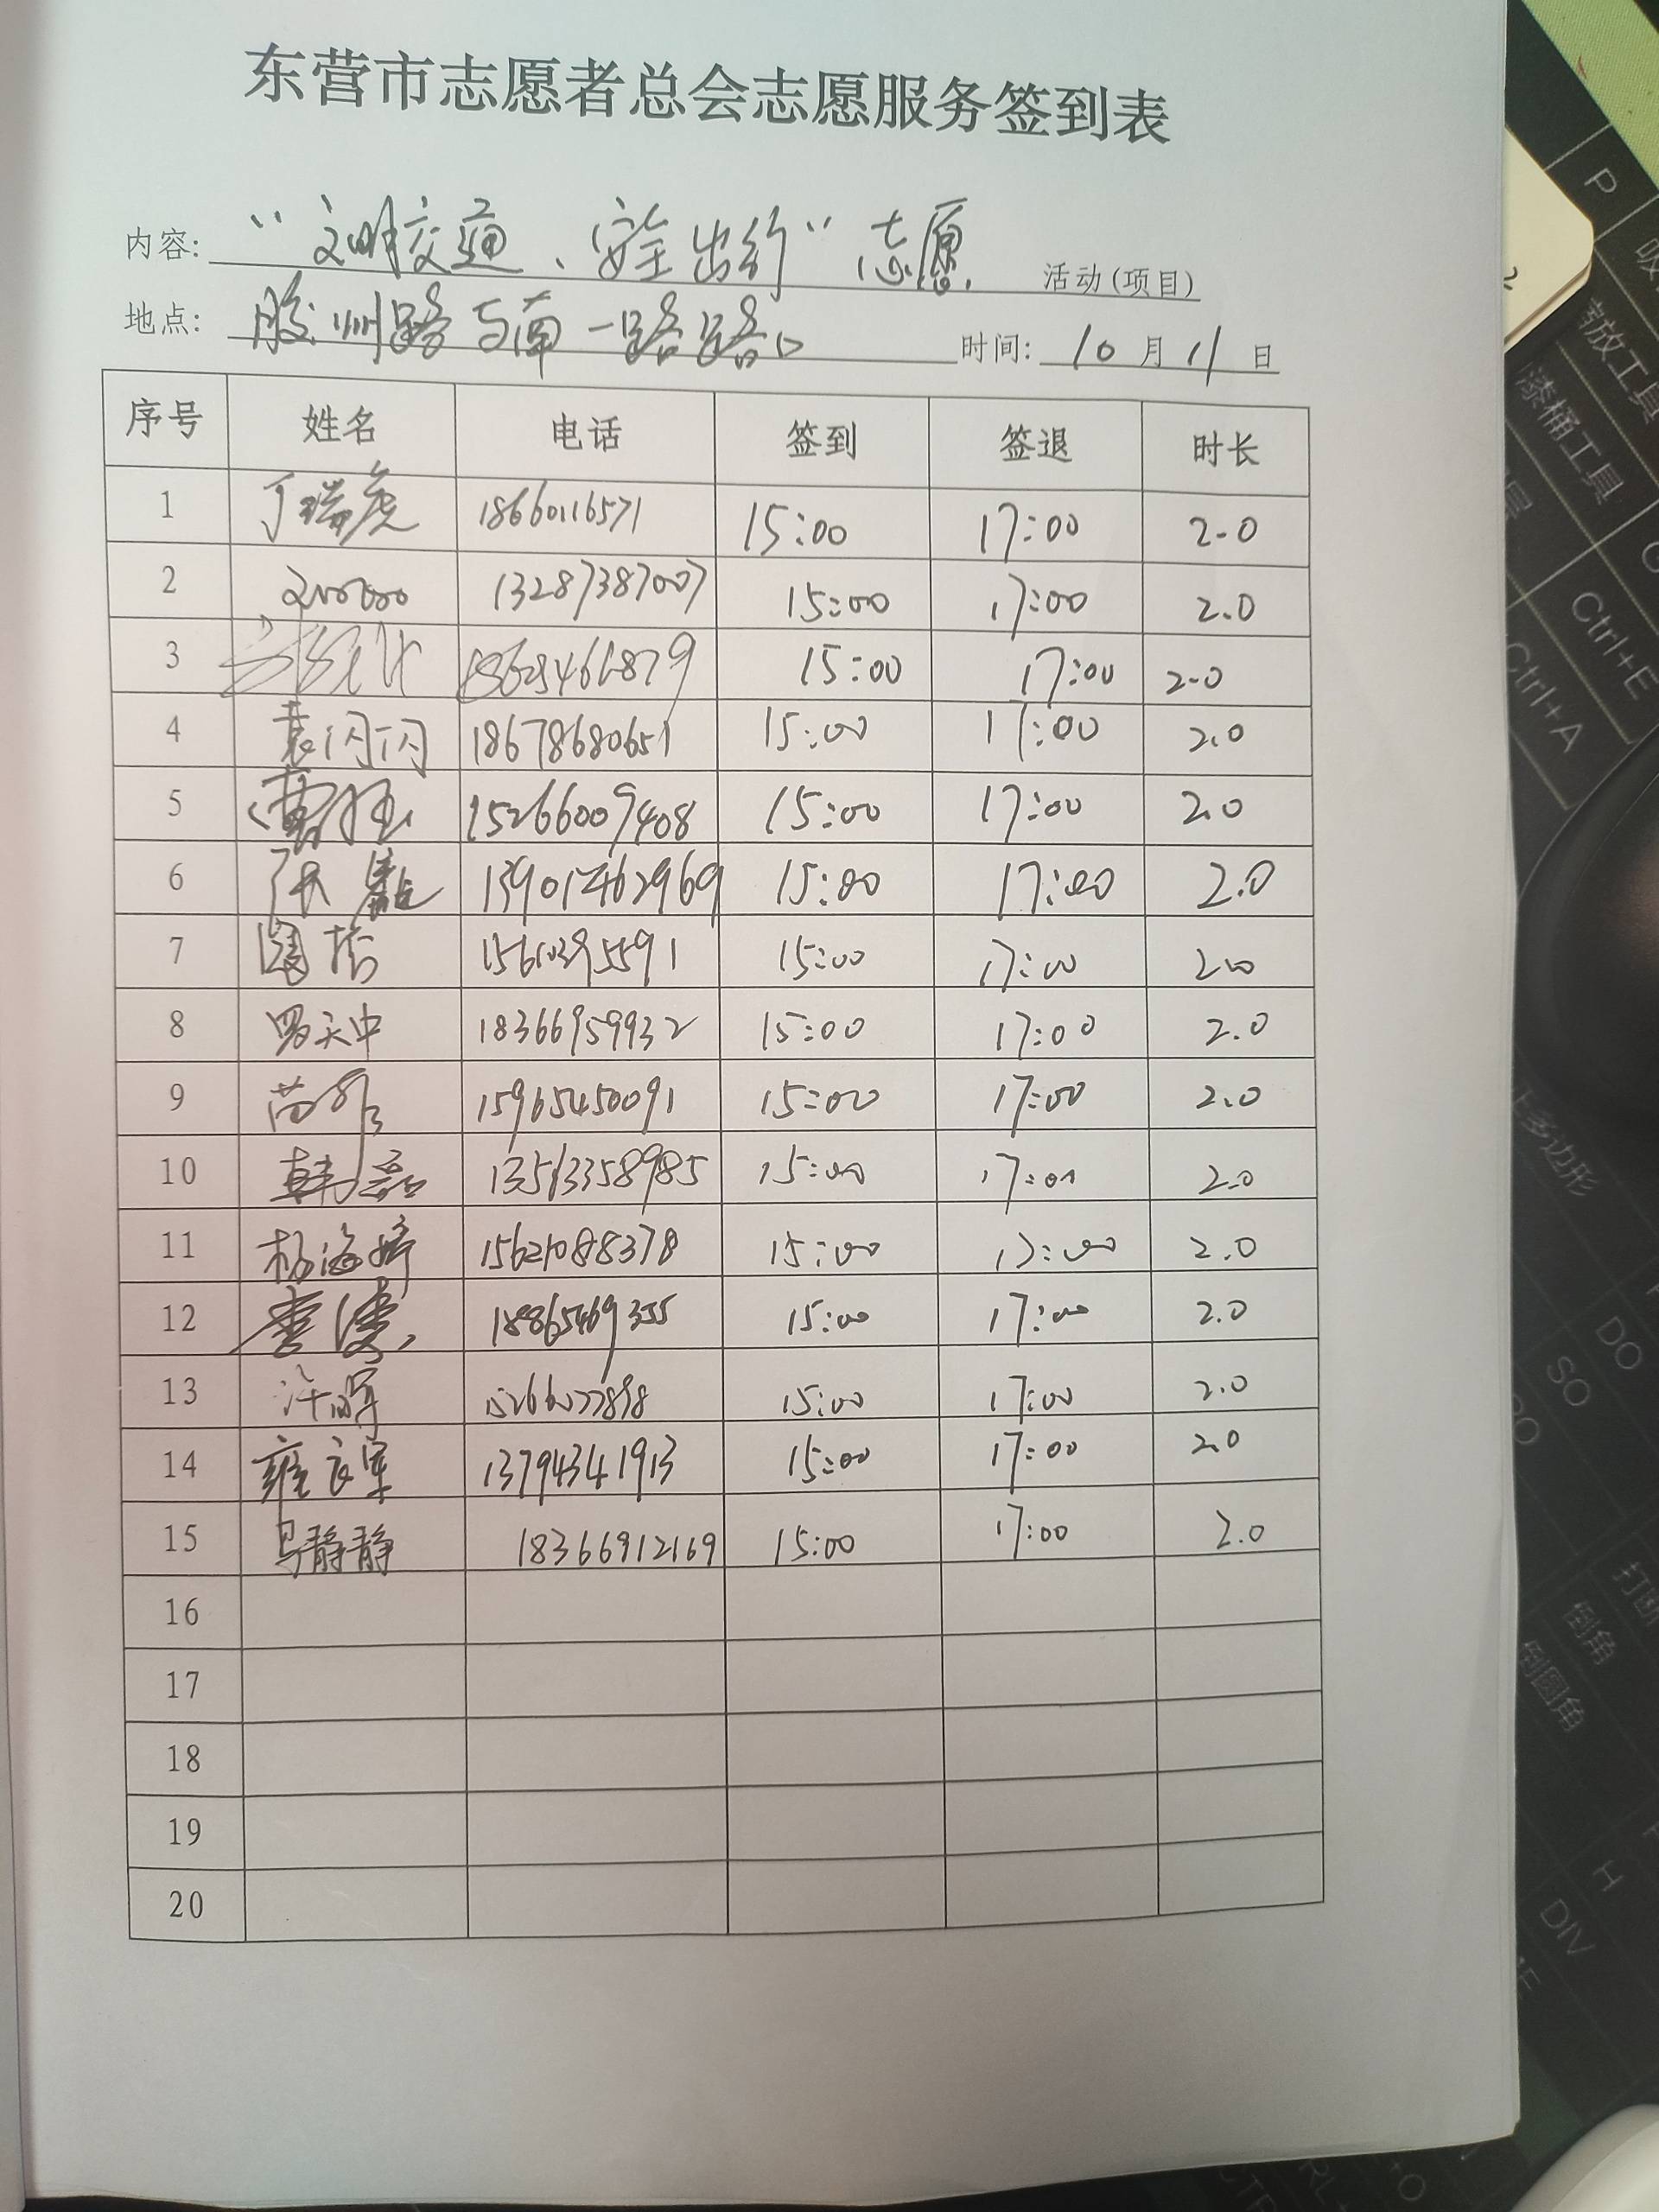 东营市志愿者总会志愿服务签到表
内容: “文明交通、安全出行”志愿 活动(项目)
地点: 胶州路与南一路路口 时间: 10月11日
序号 姓名 电话 签到 签退 时长
1 丁瑞虎 18660116571 15:00 17:00 2.0
2 13287387007 15:00 17:00 2.0
3 15:00 17:00 2.0
4 袁闪闪 18678680651 15:00 17:00 2.0
5 15266009408 15:00 17:00 2.0
6 张 15:00 17:00 2.0
7 15:00 17:00 2.0
8 罗天中 18366959932 15:00 17:00 2.0
9 苗 15965450091 15:00 17:00 2.0
10 韩磊 13563358985 15:00 17:00 2.0
11 杨海婷 15621088378 15:00 17:00 2.0
12 李涛 18865469355 15:00 17:00 2.0
13 许 15:00 17:00 2.0
14 雍立军 13794341913 15:00 17:00 2.0
15 马静静 18366912169 15:00 17:00 2.0
16
17
18
19
20
P
Ctrl+E
Ctrl+A
漆桶工具
多边形
倒角
倒圆角
DO
SO
H
DIV